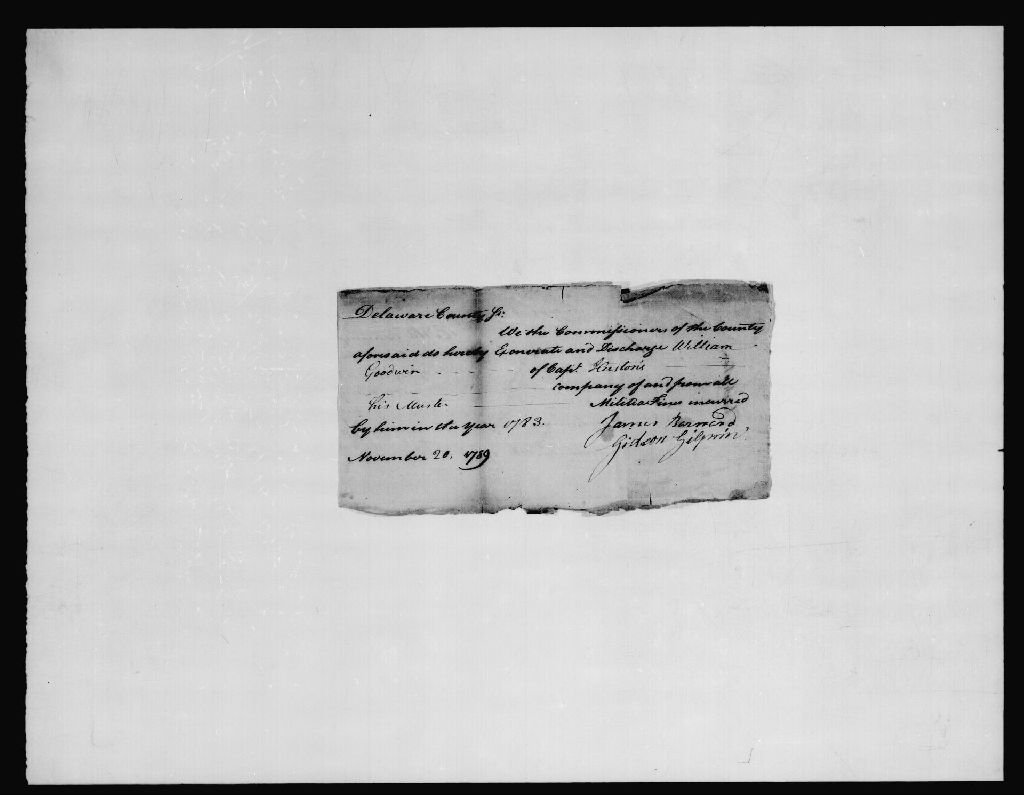 Delaware County Ss.
We the Commissioners of the County
aforesaid do hereby Exonerate and Discharge William
Goodwin of Capt. Huston's
company of and from all
his Muster Militia Fines incurred
by him in the year 1783.
James Barnard
Gideon Gilpin
November 20. 1789